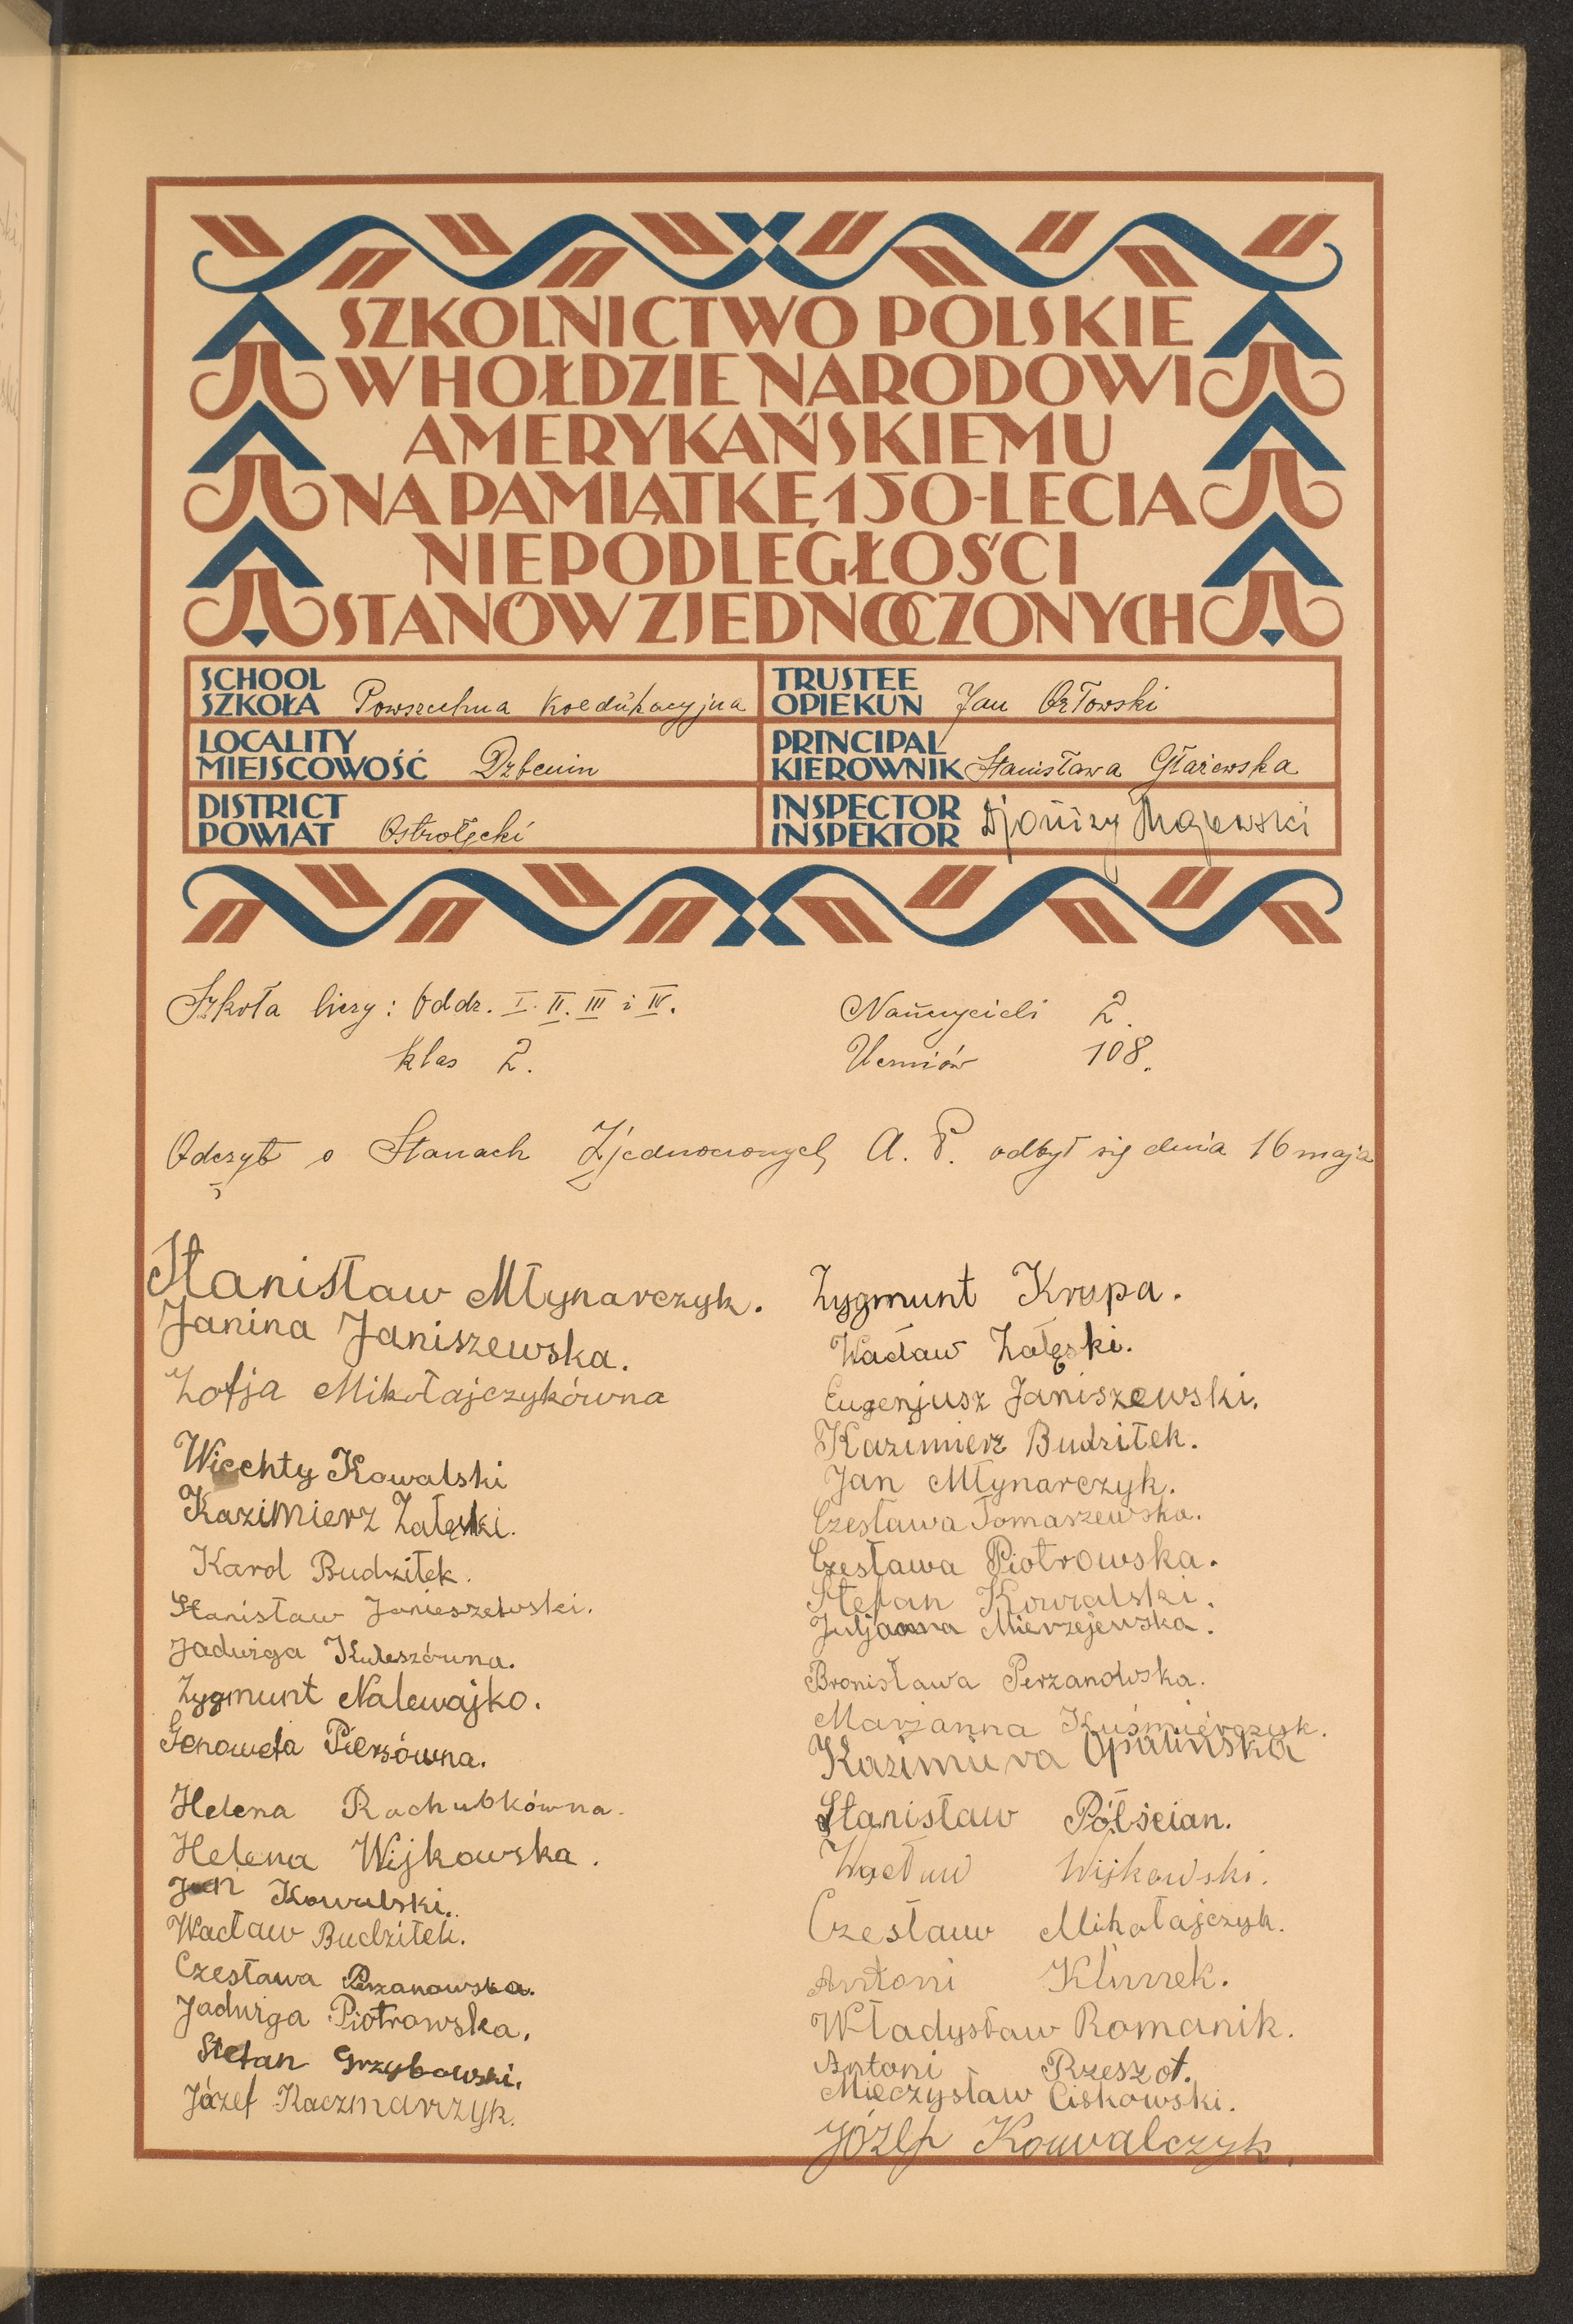 SZKOLNICTWO POLSKIE
W HOŁDZIE NARODOWI
AMERYKAŃSKIEMU
NA PAMIĄTKĘ 150-LECIA
NIEPODLEGŁOŚCI
STANÓW ZJEDNOCZONYCH
SCHOOL
SZKOŁA Powszechna Koedukacyjna
TRUSTEE
OPIEKUN Jan Orłowski
LOCALITY
MIEJSCOWOŚĆ Dzbenin
PRINCIPAL
KIEROWNIK Stanisława Głażewska
DISTRICT
POWIAT Ostrołęcki
INSPECTOR
INSPEKTOR Djonizy Majewski
Szkoła liczy: Oddz. I. II. III i IV.
klas 2.
Nauczycieli 2.
Uczniów 108.
Odczyt o Stanach Zjednoczonych A. P. odbył się dnia 16 maja
Stanisław Młynarczyk.
Janina Janiszewska.
Zofja Mikołajczykówna
Wiechty Kowalski
Kazimierz Załęski.
Karol Budziłek.
Stanisław Janieszewski.
Jadwiga Kuleszówna.
Zygmunt Nalewajko.
Genowefa Piersówna.
Helena Rachubkówna.
Helena Wijkowska.
Jan Kowalski.
Wacław Budziłek.
Czesława Perzanowska.
Jadwiga Piotrowska.
Stefan Grzybowski.
Józef Kaczmarzyk.
Zygmunt Krupa.
Wacław Załęski.
Eugenjusz Janiszewski.
Kazimierz Budziłek.
Jan Młynarczyk.
Czesława Tomaszewska.
Czesława Piotrowska.
Stefan Kowalski.
Juljanna Mierzejewska.
Bronisława Perzanowska.
Marzanna Kuśmiérczyk.
Kazimiera Opalińska
Stanisław Półścian.
Wacław Wijkowski.
Czesław Mikołajczyk.
Antoni Klimek.
Władysław Romanik.
Antoni Rzeszot.
Mieczysław Ciskowski.
Józef Kowalczyk.